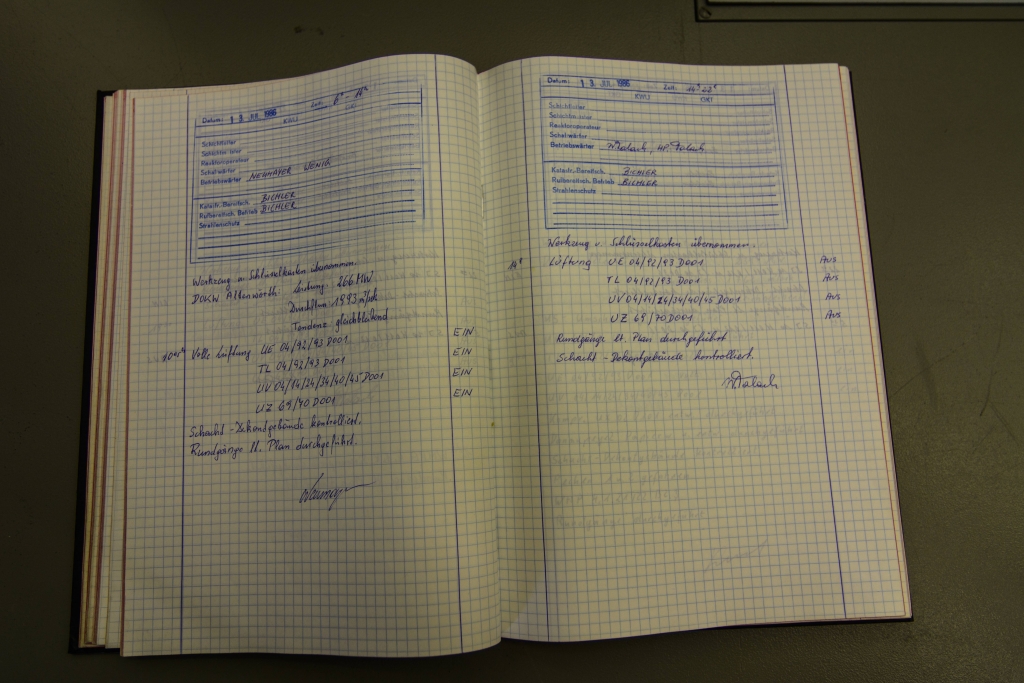 Datum: 13. JUL. 1986 Zeit: 6ʰ - 14ʰ
KWU
Schichtleiter
Schichtmeister
Reaktoroperateur
Schaltwärter
Betriebswärter NEUMAYER WENIG
Katastr. Bereitsch. BICHLER
Rufbereitsch. Betrieb BICHLER
Strahlenschutz
Werkzeug u. Schlüsselkasten übernommen.
DOKW Altenwörth: Leistung: 266 MW
Durchfluss: 1993 m³/sek
Tendenz gleichbleibend
Volle Lüftung UE 04/92/93 D001 EIN
TL 04/92/93 D001 EIN
UV 04/14/24/34/40/45 D001 EIN
UZ 69/70 D001 EIN
Schacht - Dekontgebäude kontrolliert.
Rundgänge lt. Plan durchgeführt.
Datum: 13. JUL. 1986 Zeit: 14ʰ 22ʰ
KWU
Schichtleiter
Schichtmeister
Reaktoroperateur
Schaltwärter
Betriebswärter
Katastr. Bereitsch. BICHLER
Rufbereitsch. Betrieb BICHLER
Strahlenschutz
Werkzeug u. Schlüsselkasten übernommen.
14ʰ Lüftung UE 04/92/93 D001 AUS
TL 04/92/93 D001 AUS
UV 04/14/24/34/40/45 D001 AUS
UZ 69/70 D001 AUS
Rundgänge lt. Plan durchgeführt
Schacht - Dekontgebäude kontrolliert.